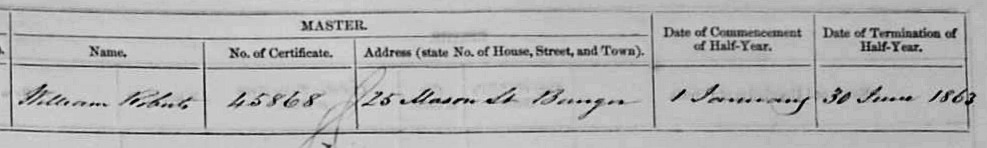 MASTER.
Name. No. of Certificate. Address (state No. of House, Street, and Town). Date of Commencement of Half-Year. Date of Termination of Half-Year.
William Roberts 45868 25 Mason St Bangor 1 January 30 June 1863